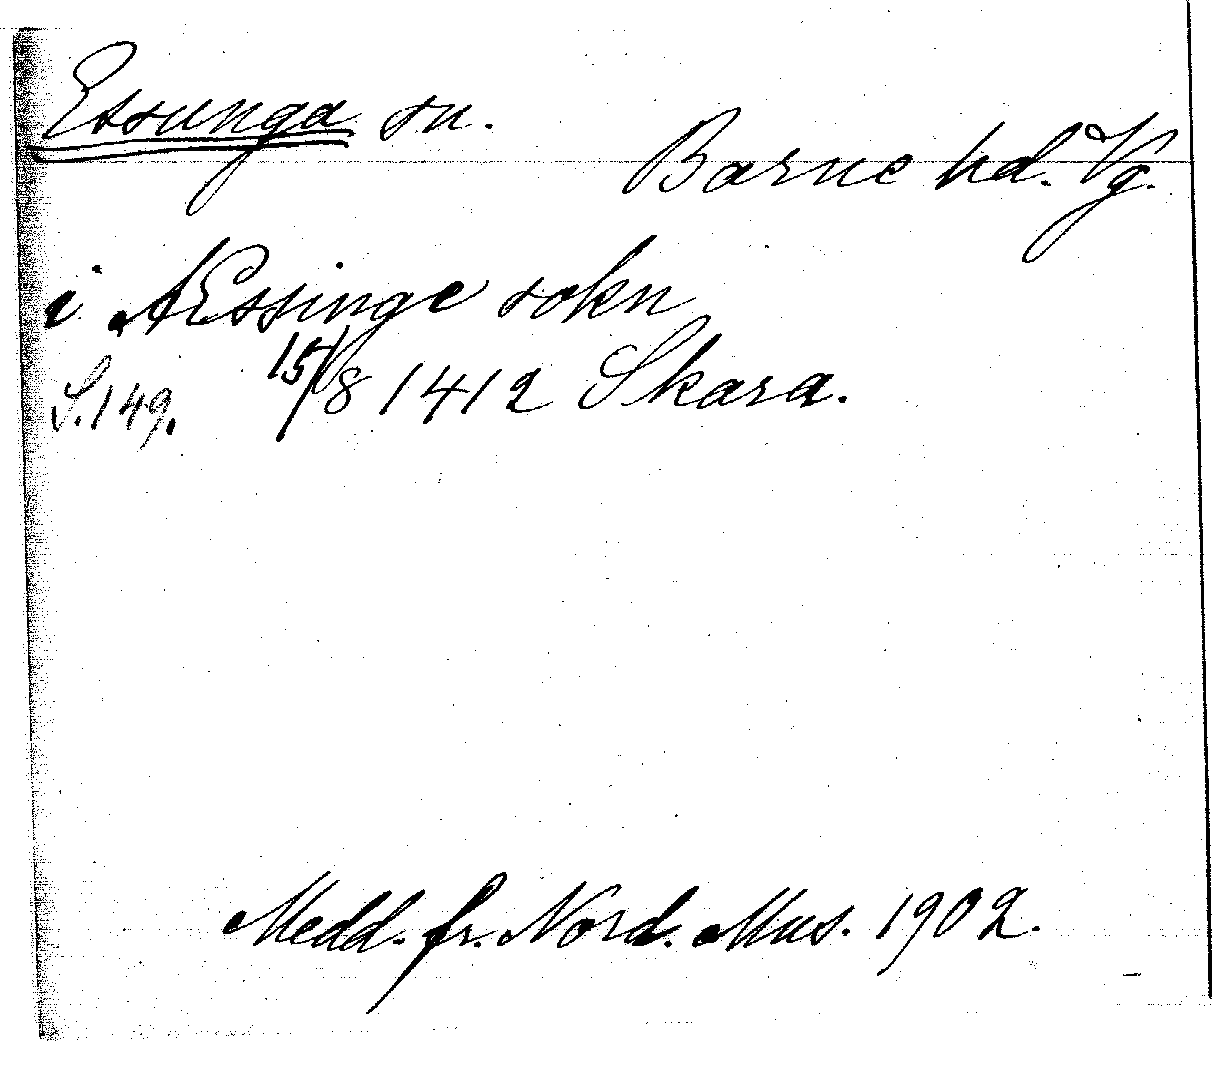 Essunga sn.
Barne hd. Vg.
i Æssinge sokn
S. 149. 15/8 1412 Skara.
Medd. fr. Nord. Mus. 1902.